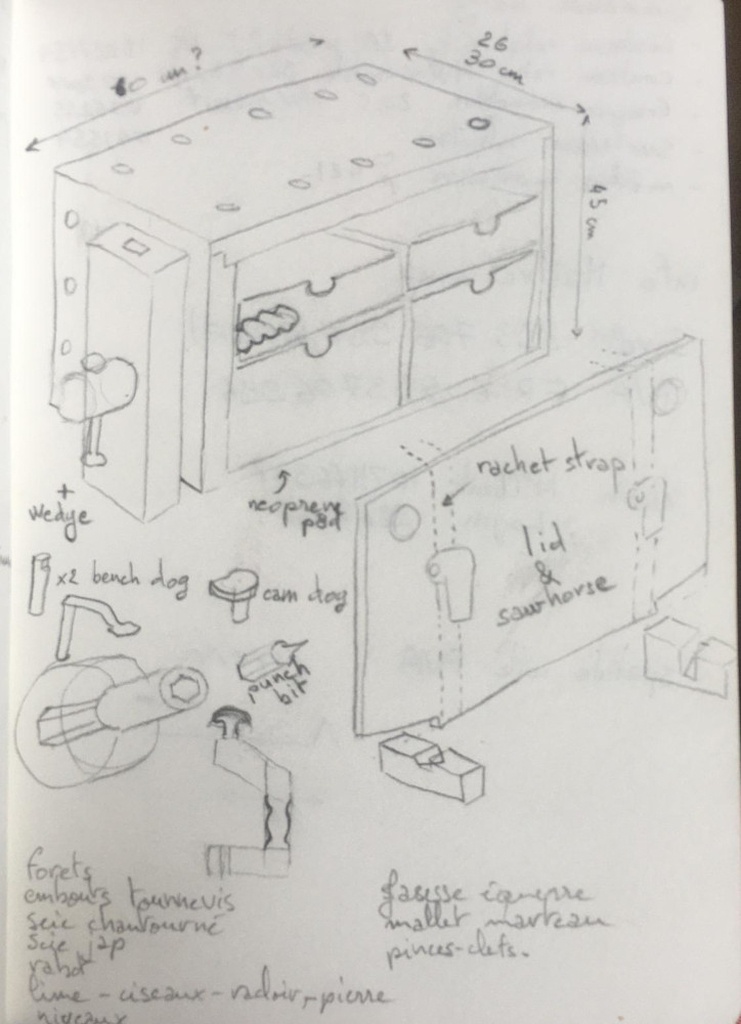 60 cm ?
26
30 cm
45 cm
+
wedge
neopren
pad
rachet strap
lid
&
sawhorse
x2 bench dog
cam dog
punch
bit
forets
embouts tournevis
scie chantourné
scie jap
rabot
lime - ciseaux - racloir, - pierre
niveaux
équerre
mallet marteau
pinces-clefs.